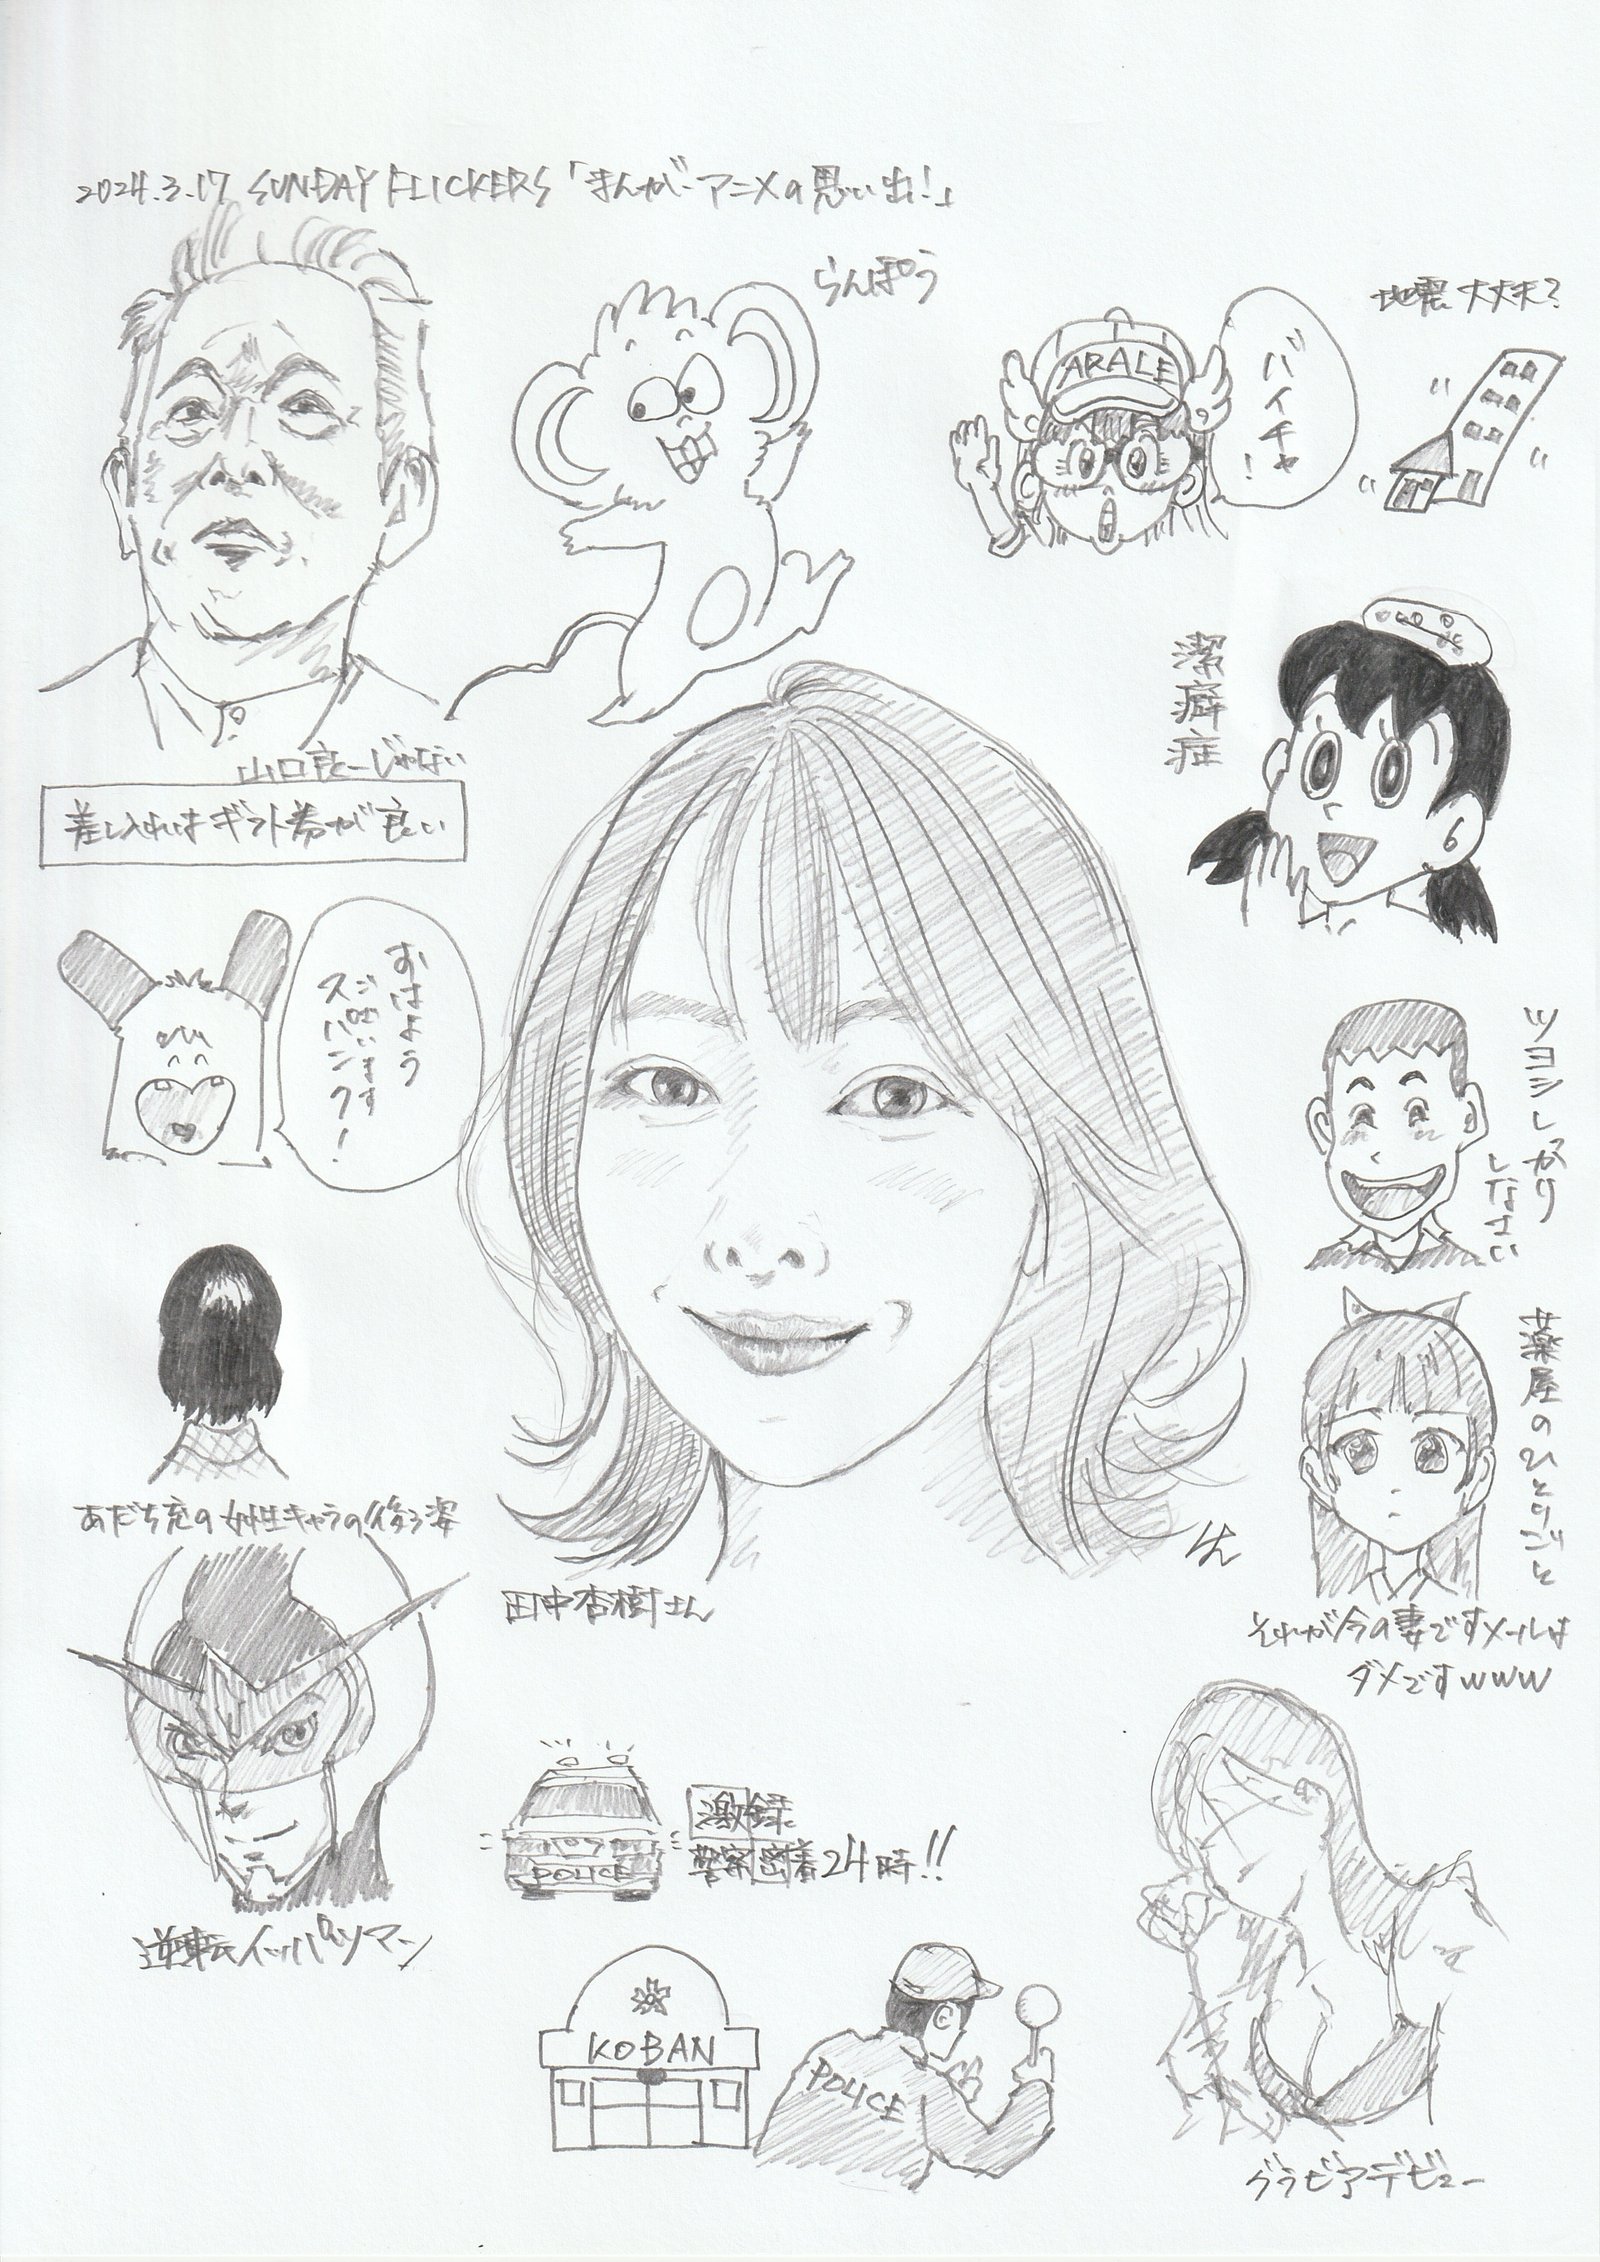 2024.3.17 SUNDAY FLICKERS「まんが・アニメの思い出！」
らんぽう
地震大丈夫？
ARALE
バイチャ！
山口良一じゃない
差し入れはギフト券が良い
潔癖症
おはよう
スパンク！
ツヨシしっかり
しなさい
あだち充の女性キャラの後ろ姿
薬屋のひとりごと
田中杏樹さん
それが今の妻ですメールは
ダメですwww
逆転イッパツマン
激録
警察密着24時!!
POLICE
KOBAN
POLICE
グラビアデビュー